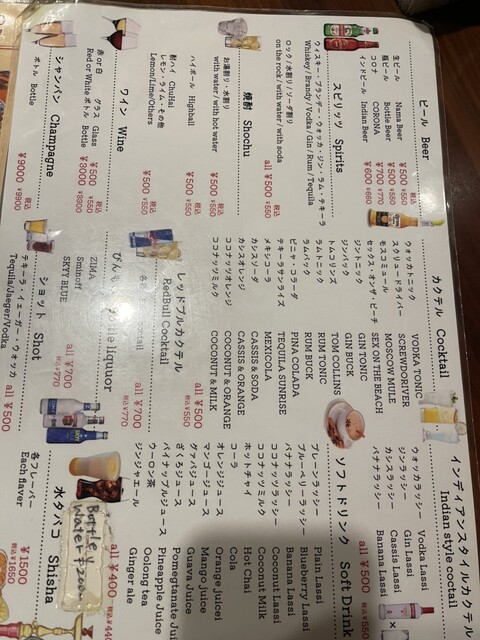 ビール Beer
生ビール Nama Beer ¥500 税込 ¥550
瓶ビール Bottle Beer ¥500 ¥550
コロナ CORONA ¥700 ¥770
インドビール Indian Beer ¥600 ¥660
スピリッツ Spirits
ウィスキー・ブランデー・ウォッカ・ジン・ラム・テキーラ
Whiskey / Brandy / Vodka / Gin / Rum / Tequila
ロック / 水割り / ソーダ割り
on the rock / with water / with soda
all ¥500 税込 ¥550
焼酎 Shochu
お湯割り・水割り
with water / with hot water ¥500 税込 ¥550
ハイボール Highball ¥500 税込 ¥550
酎ハイ ChuHai
レモン・ライム・その他
Lemon/Lime/Others ¥500 税込 ¥550
ワイン Wine
赤 or 白 グラス Glass ¥500 税込 ¥550
Red or White ボトル Bottle ¥3000 税込 ¥3300
シャンパン Champagne
ボトル Bottle ¥9000 税込 ¥9900
カクテル Cocktail
ウォッカトニック VODKA TONIC
スクリュードライバー SCREWDRIVER
モスコミュール MOSCOW MULE
セックス・オン・ザ・ビーチ SEX ON THE BEACH
ジントニック GIN TONIC
ジンバック GIN BUCK
トムコリンズ TOM COLLINS
ラムトニック RUM TONIC
ラムバック RUM BUCK
ピニャ・コラーダ PINA COLADA
テキーラサンライズ TEQUILA SUNRISE
メキシコーラ MEXICOLA
カシスソーダ CASSIS & SODA
カシスオレンジ CASSIS & ORANGE
ココナッツオレンジ COCONUT & ORANGE
ココナッツミルク COCONUT & MILK
all ¥500 税込 ¥550
レッドブルカクテル
RedBull Cocktail
all ¥700 税込 ¥770
liquuor
ZIMA
Sminoff
SKYY BLUE
all ¥700 税込 ¥770
ショット Shot
テキーラ・イェーガー・ウォッカ
Tequila/Jaeger/Vodka
all ¥500
インディアンスタイルカクテル
Indian style coctail
ウォッカラッシー Vodka Lassi
ジンラッシー Gin Lassi
カシスラッシー Cassis Lassi
バナナラッシー Banana Lassi
all ¥500
税込 ¥550
ソフトドリンク Soft Drink
プレーンラッシー Plain Lassi
ブルーベリーラッシー Blueberry Lassi
バナナラッシー Banana Lassi
ココナッツラッシー Coconut Lassi
ココナッツミルク Coconut Milk
ホットチャイ Hot Chai
コーラ Cola
オレンジジュース Orange juicei
マンゴージュース Mango Juice
グァバジュース Guava Juice
ざくろジュース Pomegtanate Jui
パイナップルジュース Pineapple Juice
ウーロン茶 Oolong tea
ジンジャエール Ginger ale
all ¥400
税込 ¥440
Bottle
Water
水タバコ Shisha
各フレーバー
Each flaver
¥1500
税込 ¥1650